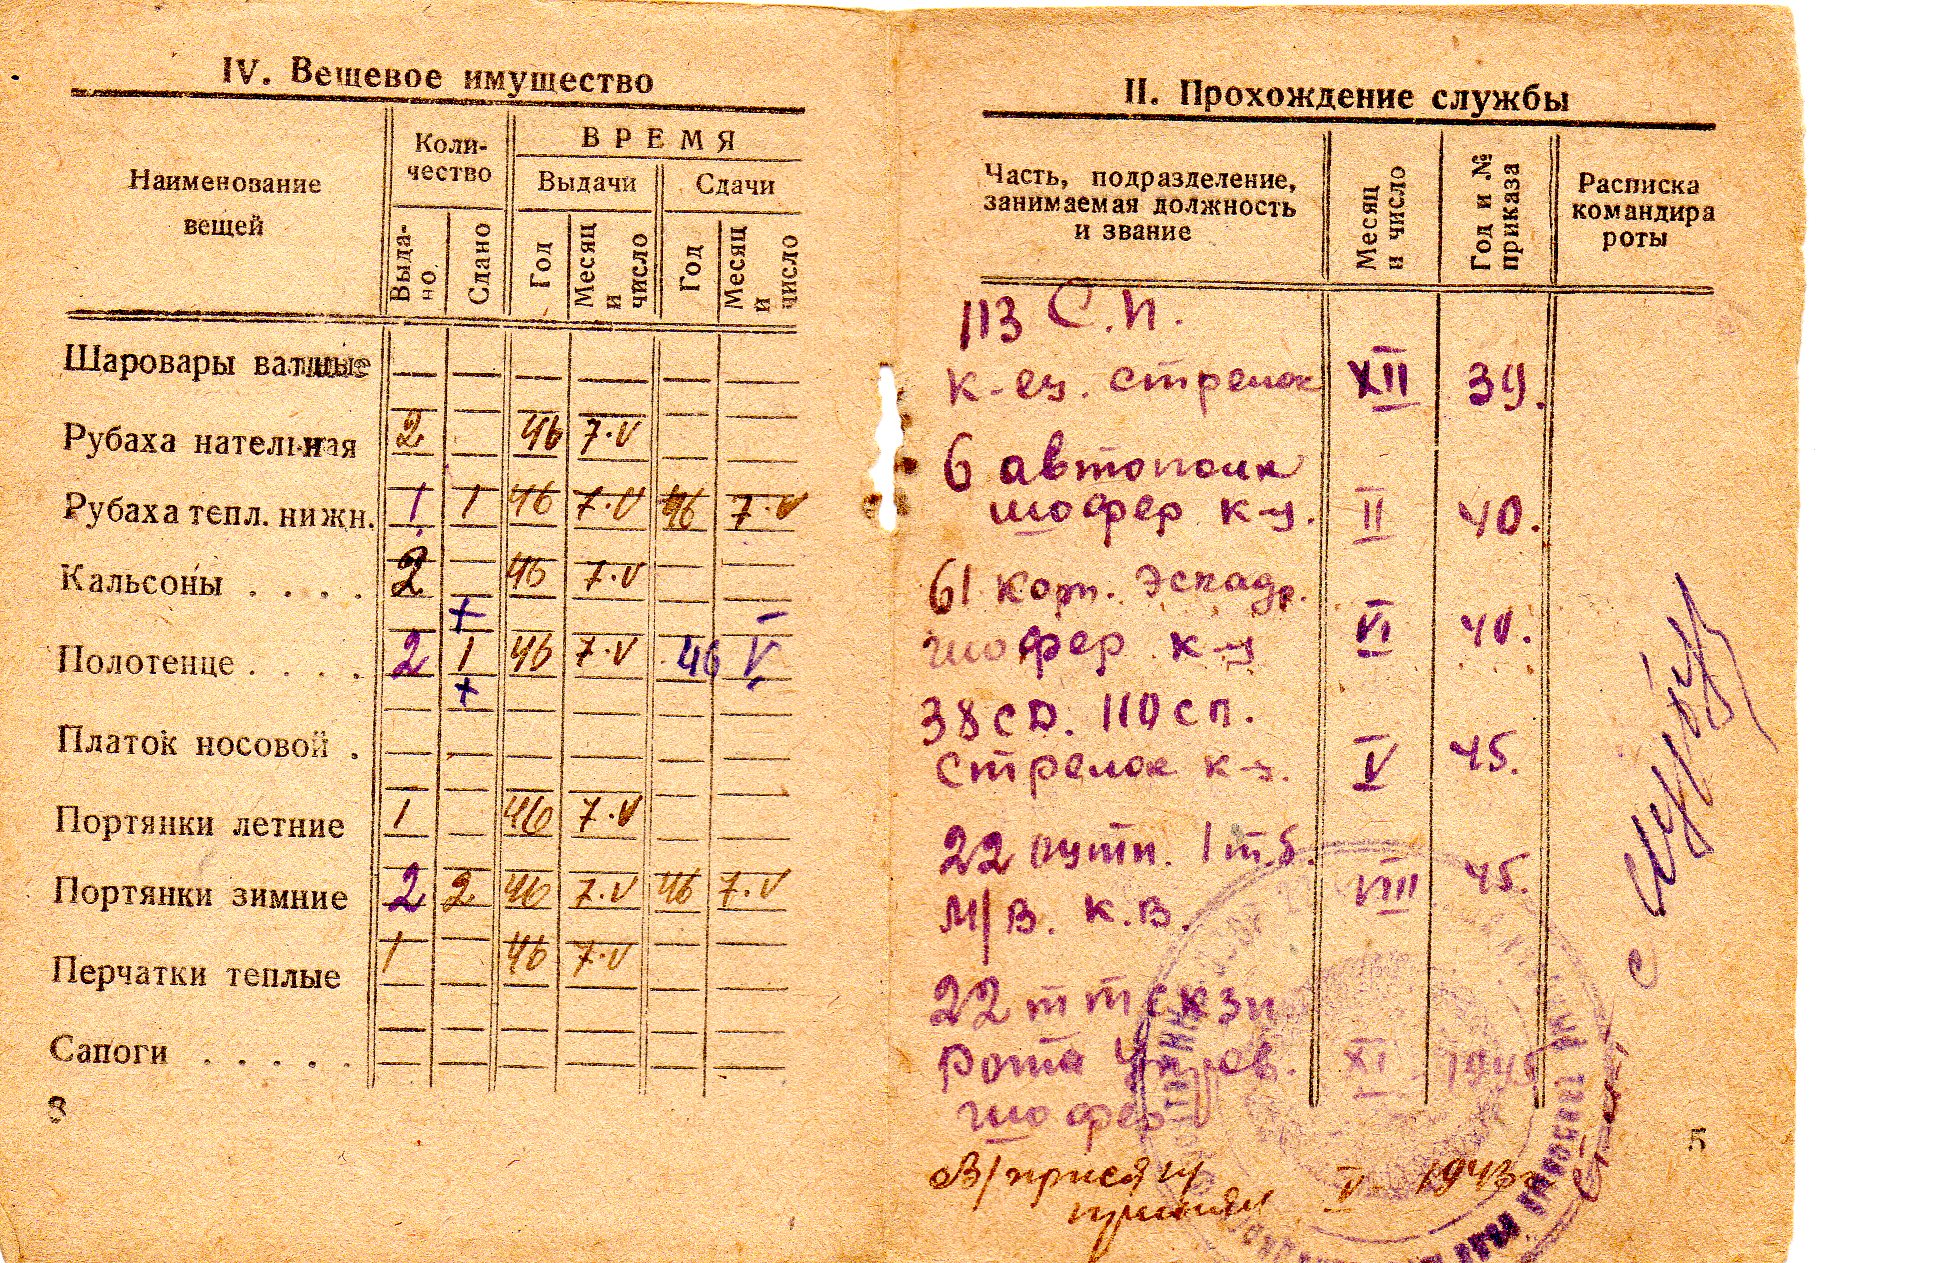 IV. Вещевое имущество
Наименование
вещей
Коли-
чество
ВРЕМЯ
Выдачи
Сдачи
Выда-
но.
Сдано
Год
Месяц
и
число
Год
Месяц
и
число
Шаровары ватные
Рубаха нательная 2 46 7.V
Рубаха тепл. нижн. 1 1 46 7.V 46 7.V
Кальсоны . . . . 2 46 7.V
+
Полотенце . . . . 2 1 46 7.V 46 V
+
Платок носовой .
Портянки летние 1 46 7.V
Портянки зимние 2 2 46 7.V 46 7.V
Перчатки теплые 1 46 7.V
Сапоги . . . . .
3
II. Прохождение службы
Часть, подразделение,
занимаемая должность
и звание
Месяц
и число
Год и №
приказа
Расписка
командира
роты
113 С.П.
к-ец. стрелок XII 39.
6 автополк
шофер к-ц. II 40.
61 корп. эскадр.
шофер к-ц VI 40.
38 сд. 110 сп.
стрелок к-ц. V 45.
22 1 т.б.
М/В. К.В. VIII 45.
22
рота XI 1945
шофер
В/присягу
принял V 1943 г.
5